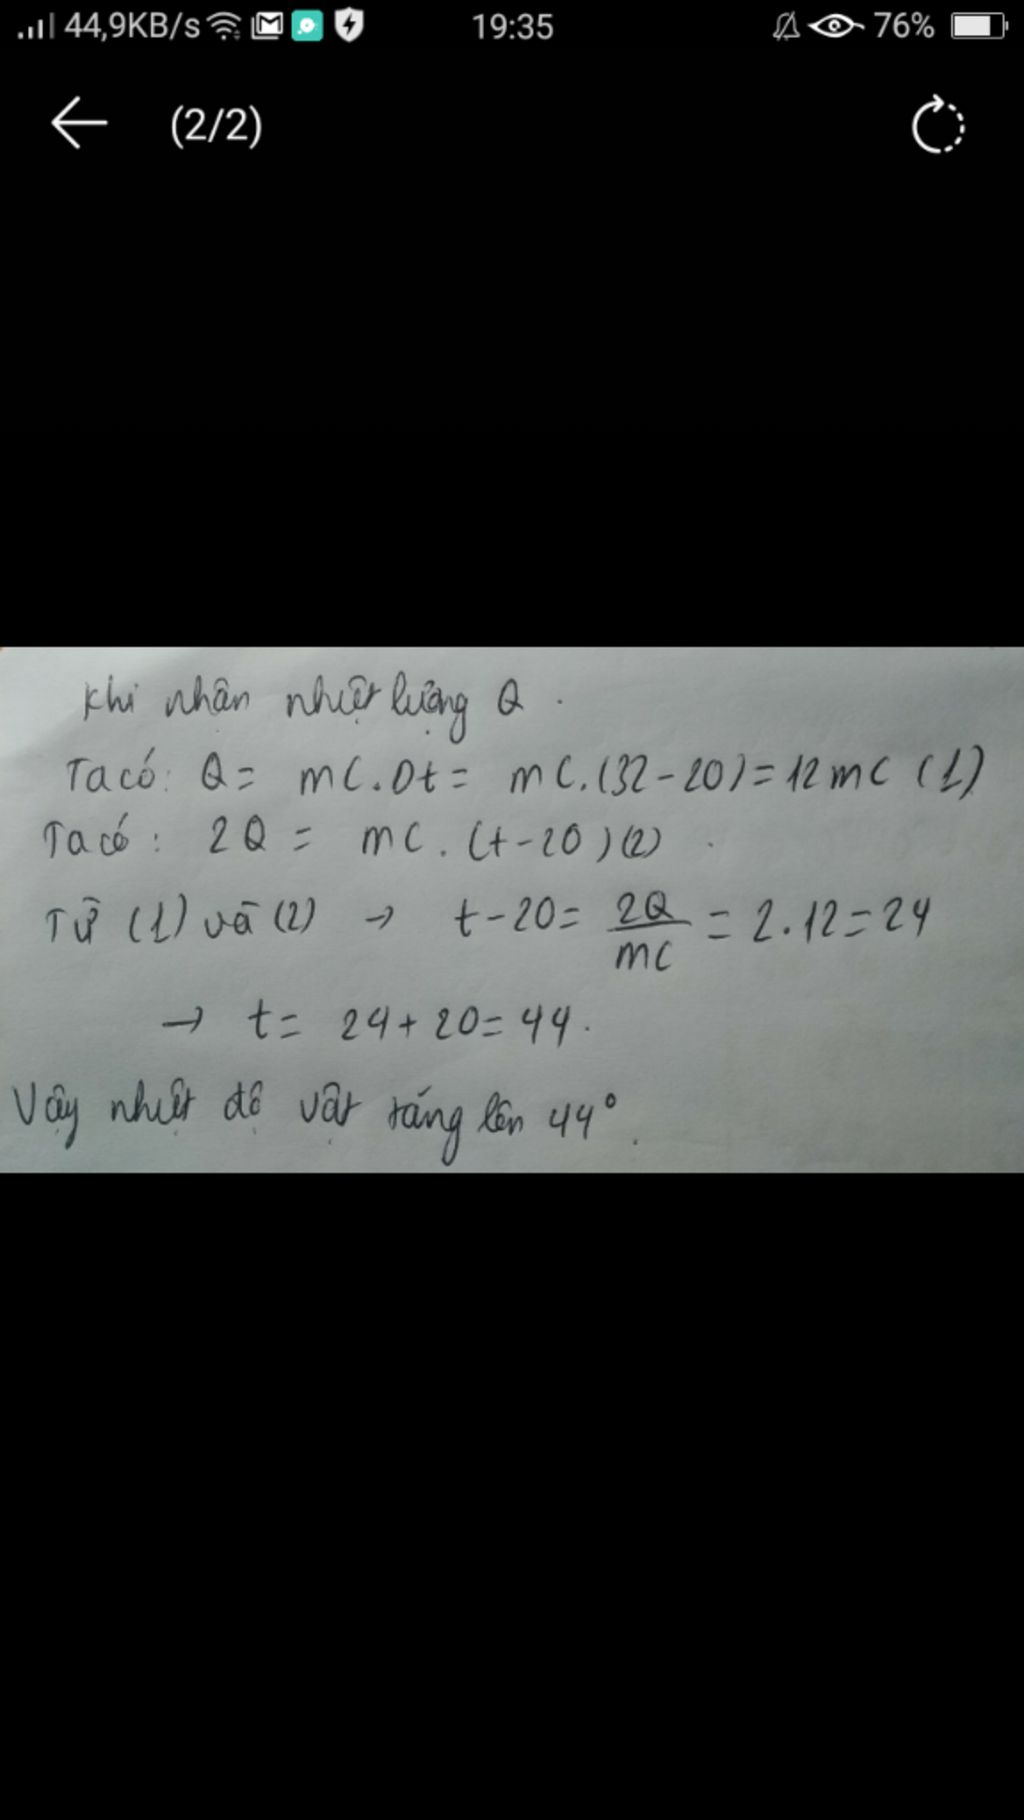 44,9KB/s 19:35 76%
(2/2)
Khi nhận nhiệt lượng Q.
Ta có: Q = mC.Dt = mC.(32-20) = 12mC (1)
Ta có: 2Q = mC.(t-20) (2)
Từ (1) và (2) → t-20 = 2Q/mC = 2.12 = 24
→ t = 24+20 = 44.
Vậy nhiệt độ vật tăng lên 44°.